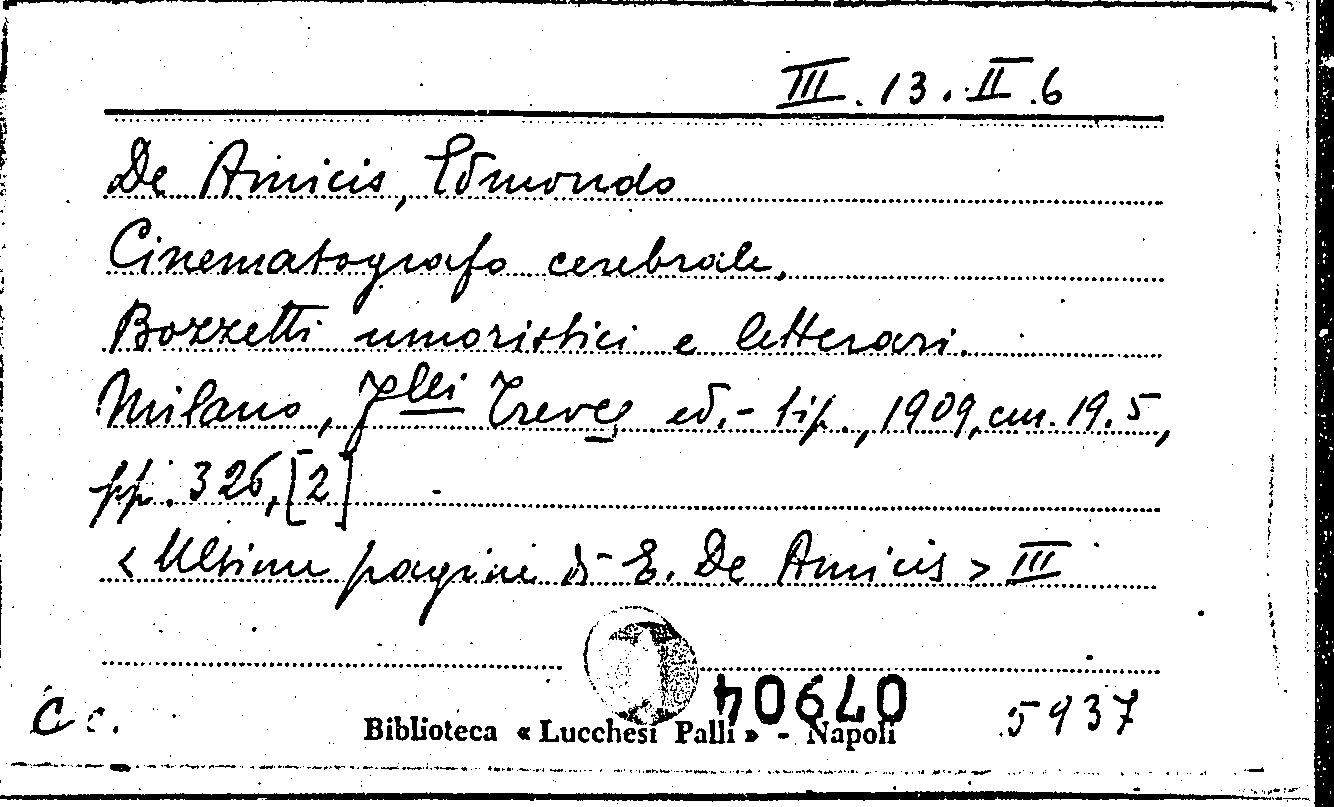 III.13.II.6
De Amicis, Edmondo
Cinematografo cerebrale.
Bozzetti umoristici e letterari.
Milano, Flli Treves ed.-tip., 1909, cm. 19.5,
pp. 326, [2]
<Ultime pagine di E. De Amicis> III
07904
C c.
Biblioteca « Lucchesi Palli » - Napoli
5937